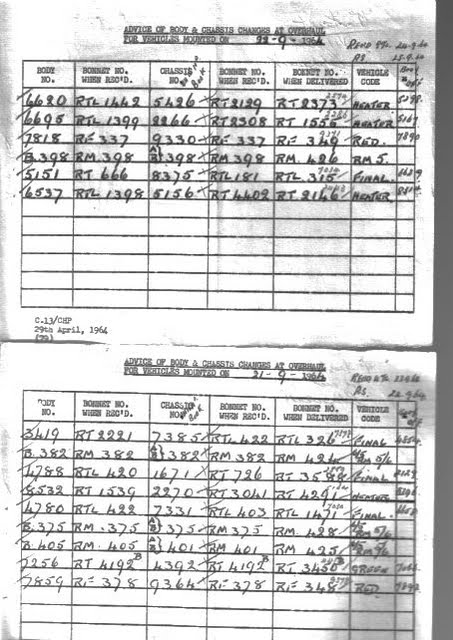 ADVICE OF BODY & CHASSIS CHANGES AT OVERHAUL
FOR VEHICLES MOUNTED ON 22-9-1964
BODY NO. BONNET NO. WHEN REC'D. CHASSIS NO. BONNET NO. WHEN DELIVERED VEHICLE CODE
6620 RTL 1442 5426 RT 2129 RT 2373 HEATER
6695 RTL 1399 2266 RT 2308 RT 1556 HEATER
7818 RF 337 9330 RF 337 RF 349 RED.
B.398 RM.398 A B 398 RM 398 RM. 426 RM 5.
5151 RT 666 8375 RTL 181 RTL 315 FINAL.
6537 RTL 1398 5156 RT 4402 RT 2146 HEATER
C.13/CHP
29th April, 1964
(79)
ADVICE OF BODY & CHASSIS CHANGES AT OVERHAUL
FOR VEHICLES MOUNTED ON 21-9-1964
BODY NO. BONNET NO. WHEN REC'D. CHASSIS NO. BONNET NO. BONNET NO. WHEN DELIVERED VEHICLE CODE
3419 RT 2221 7385 RTL 422 RTL 326 FINAL
B.382 RM 382 A B 382 RM 382 RM 424 RM 5/6
4788 RTL 420 1671 RT 726 FINAL
8532 RT 1539 2270 RT 3041 RT 4291 HEATER
4780 RTL 422 7331 RTL 403 RTL 1471 FINAL
B.375 RM.375 A B 375 RM 375 RM. 428 RM 5/6
B.405 RM.405 A B 401 RM 401 RM 425
7256 RT 4192 4392 RT 4192 RT 3450 GREEN
7859 RF 378 9364 RF 378 RF 348 RED